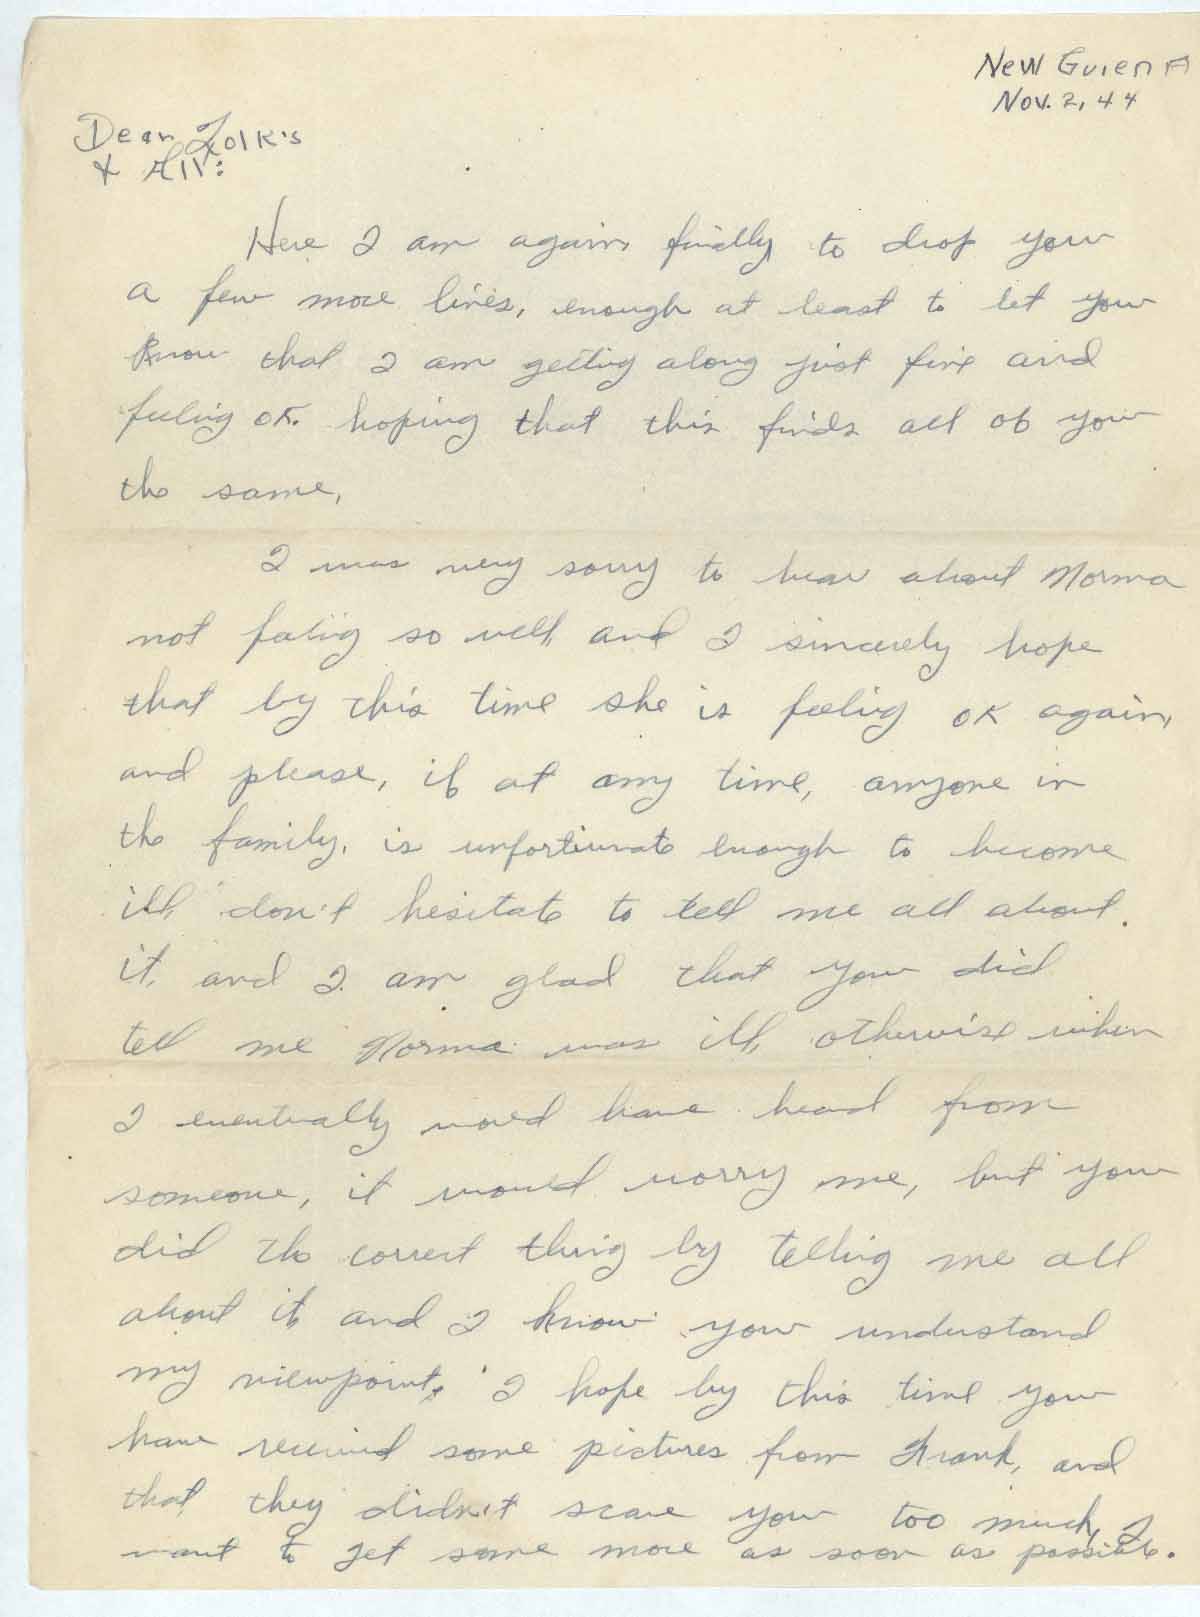 New GuienA
Nov. 2, 44
Dear Folk's
& All:
Here I am again, finally to drop you
a few more lines, enough at least to let you
know that I am getting along just fine and
feeling OK. hoping that this finds all of you
the same,
I was very sorry to hear about Norma
not feeling so well, and I sincerely hope
that by this time she is feeling OK again,
and please, if at any time, anyone in
the family, is unfortunate enough to become
ill, don't hesitate to tell me all about
it, and I am glad that you did
tell me Norma was ill, otherwise when
I eventually would have heard from
someone, it would worry me, but you
did the correct thing by telling me all
about it, and I know you understand
my viewpoint. I hope by this time you
have received some pictures from Frank, and
that they didn't scare you too much, I
want to get some more as soon as possible.